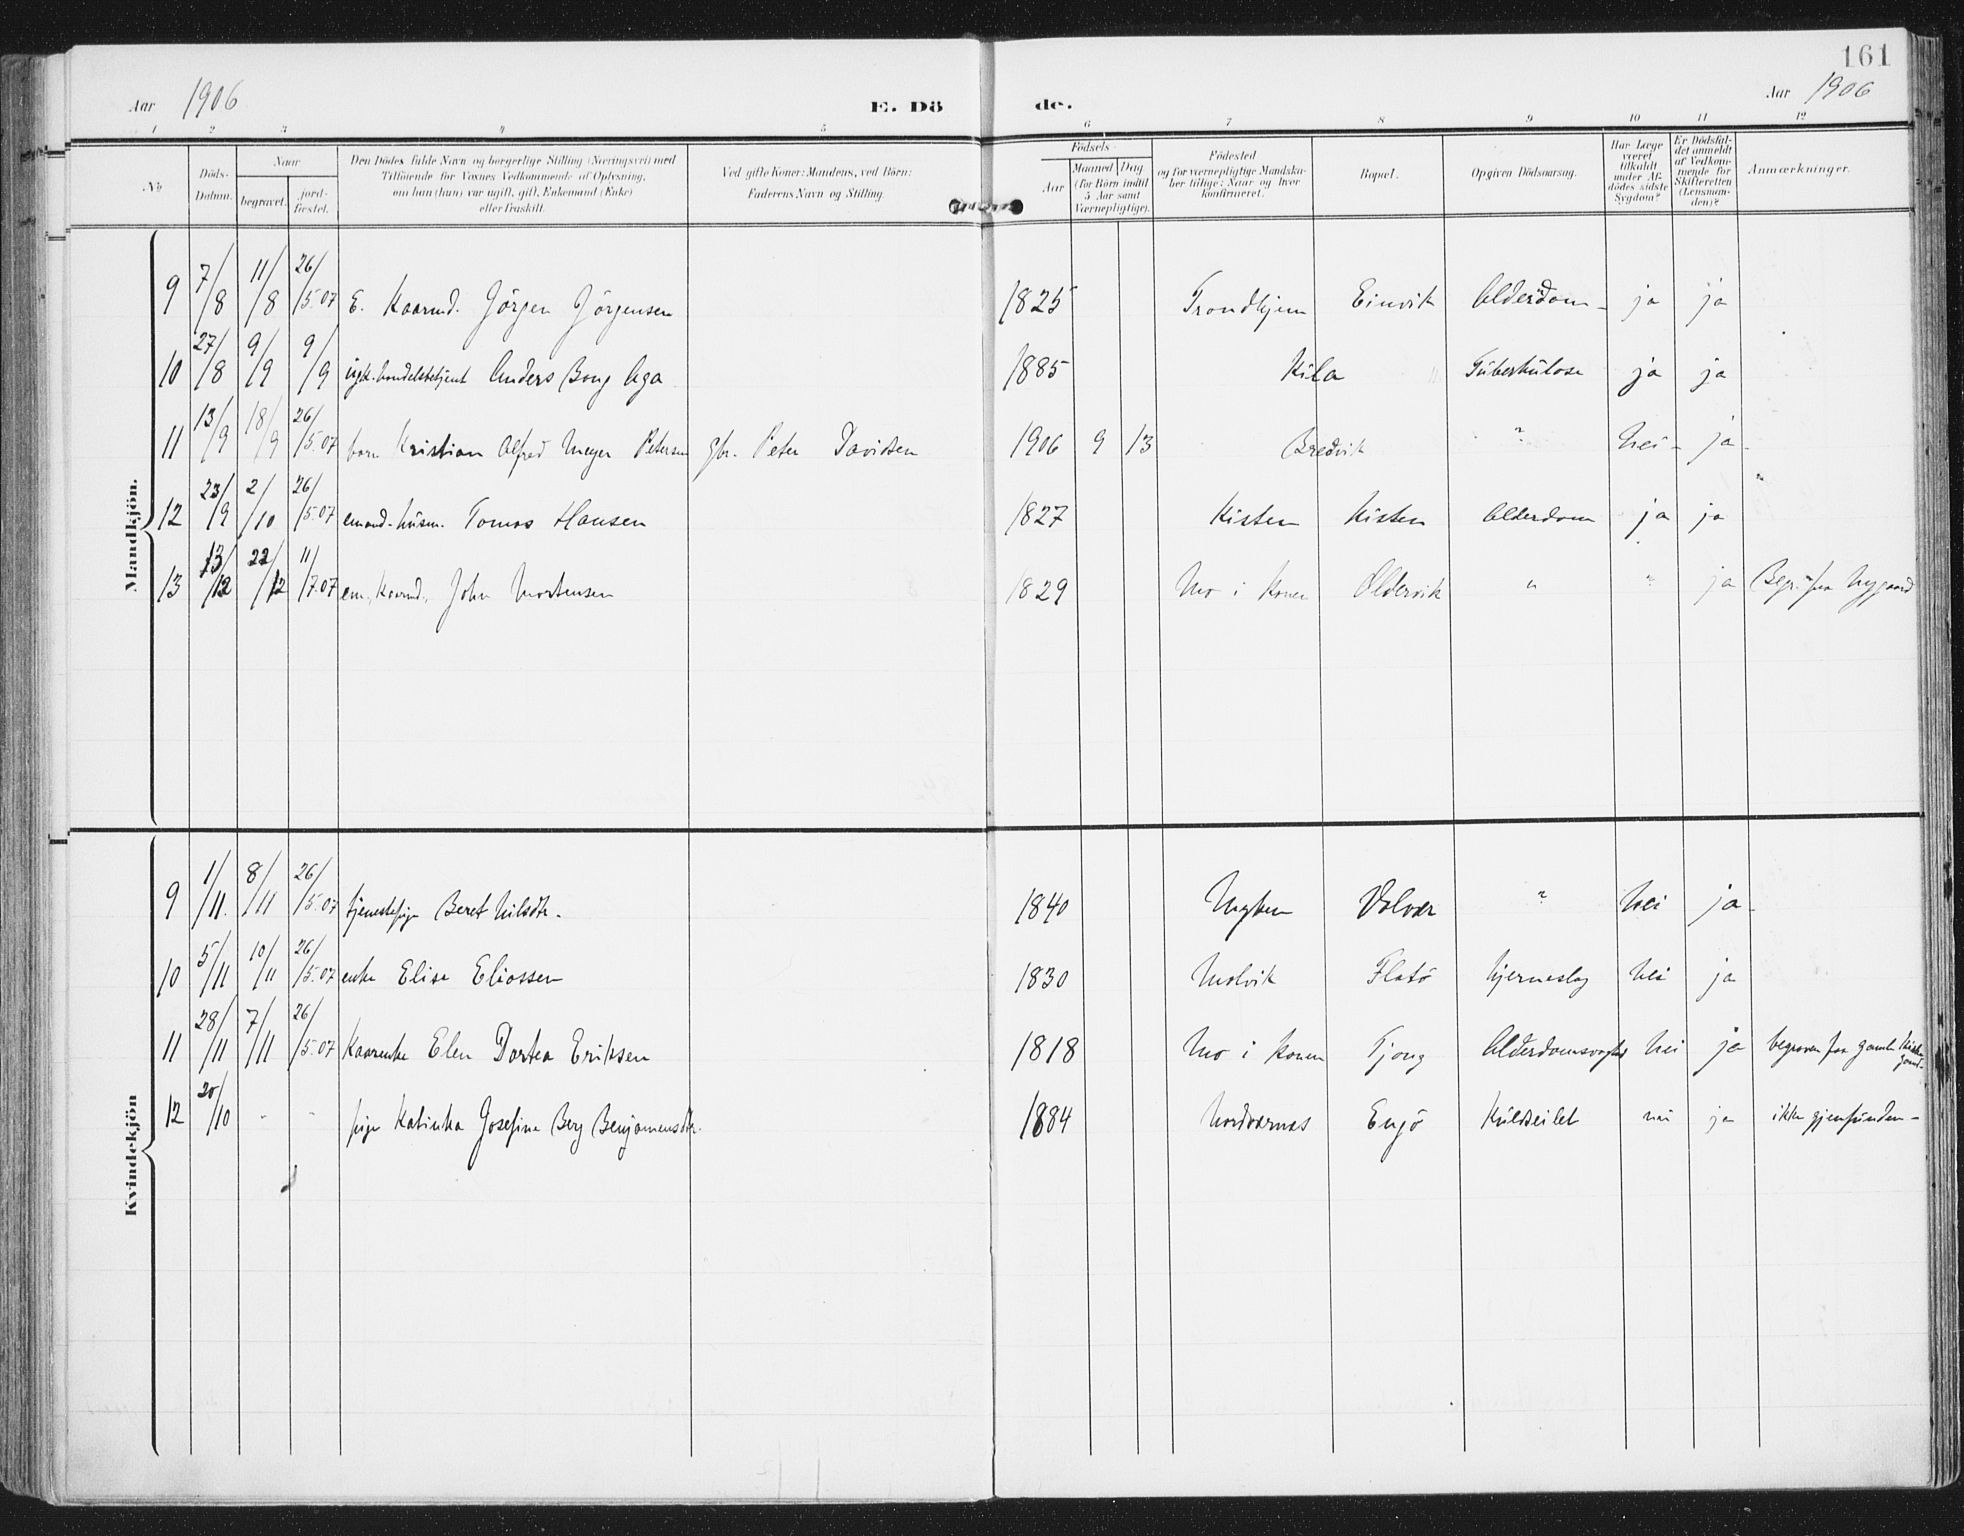 161
Aar 1906 E. Dö de. Aar 1906
1 2 3 4 5 6 7 8 9 10 11 12
No
Döds-Datum.
Naar
begravet.
jord-fæstet.
Den Dödes fulde Navn og borgerlige Stilling (Næringsvei) med
Tilföiende for Voxnes Vedkommende af Oplysning,
om han (hun) var ugift, gift, Enkemand (Enke)
eller fraskilt.
Ved gifte Koner: Mandens, ved Börn:
Faderens Navn og Stilling.
Födsels-
Aar
Maaned Dag
(for Börn indtil
5 Aar samt
Værnepligtige).
Födested
og for værnepligtige Mandska-
ber tillige: Naar og hvor
konfirmeret.
Bopæl.
Opgiven Dödsaarsag.
Har Læge
været
tilkaldt
under Af-
dödes sidste
Sygdom?
Er Dödsfal-
det anmeldt
af Vedkom-
mende for
Skifteretten
(Lensman-
den)?
Anmærkninger.
Mandkjön.
9 7/8 11/8 26/5.07 E. Kaarmd. Jörgen Jörgensen 1825 Trondhjem Einvik Alderdom- ja ja
10 27/8 9/9 9/9 ugk. handelsbetjent Anders Bong Aga 1885 Kila " Tuberkulose ja ja
11 13/9 18/9 26/5.07 barn Kristian Alfred Meyer Petersen gbr. Peter Davidsen 1906 9 13 Bredvik ? Nei- ja-
12 23/9 2/10 26/5.07 emand. husm. Tomas Hansen 1827 Kisten Kisten Alderdom ja ja "
13 13/12 22/12 11/7.07 em. Kaarmd., John Mortensen 1829 Mo i Ranen Oldervik " " ja Begr. fra Nygaard
Kvindekjön
9 1/11. 8/11 26/5.07 tjenestepige Beret Nilsdtr. 1840 Myken Valvær ? Nei ja-
10 5/11 10/11 26/5.07 enke Elisa Eliassen 1830 Molvik Flatö hjerneslag Nei ja
11 28/11 7/11 26/5.07 Kaarenke Elen Dortea Eriksen 1818 Mo i Ranen Tjong Alderdomsvaghed Nei ja begraven paa gamle Kirkegaard-
12 20/10 - - pige Katinka Josefine Berg Benjamensdtr. 1884 Nordværnes Engö Kuldseilet nei ja ikke gjenfunden-